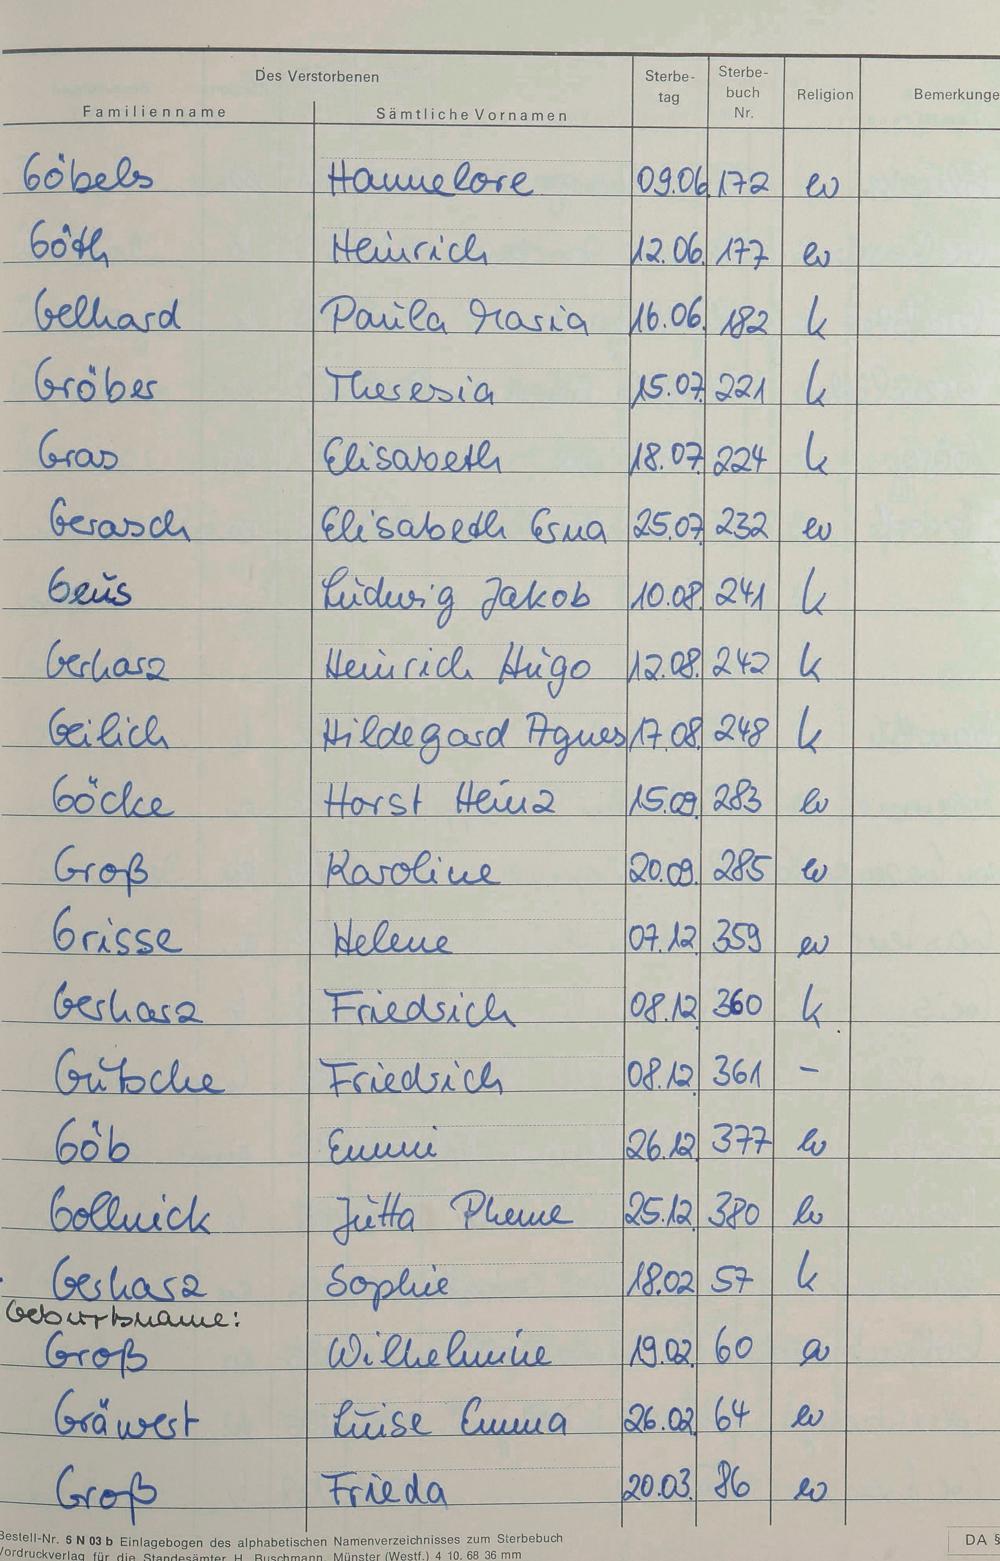 Des Verstorbenen
Sterbe-
tag
Sterbe-
buch
Nr.
Religion
Bemerkunge
Familienname Sämtliche Vornamen
Göbels Hannelore 09.06 172 ev
Göth Heinrich 12.06. 177 ev
Gelhard Paula Maria 16.06. 182 k
Gröber Theresia 15.07. 221 k
Gras Elisabeth 18.07. 224 k
Gerasch Elisabeth Erna 25.07. 232 ev
Geus Ludwig Jakob 10.08. 241 k
Gerharz Heinrich Hugo 12.08. 242 k
Geilich Hildegard Agnes 17.08. 248 k
Göcke Horst Heinz 15.09. 283 ev
Groß Karoline 20.09. 285 ev
Grisse Helene 07.12. 359 ev
Gerharz Friedrich 08.12. 360 k
Gutsche Friedrich 08.12. 361 –
Göb Emmi 26.12. 377 ev
Gollnick Jutta 25.12. 380 ev
Gerharz Sophie 18.02 57 k
Geburtsname:
Groß Wilhelmine 19.02. 60
Gräwert Luise Emma 26.02. 64 ev
Groß Frieda 20.03. 86 ev
Bestell-Nr. 5 N 03 b Einlagebogen des alphabetischen Namenverzeichnisses zum Sterbebuch
Vordruckverlag für die Standesämter H. Buschmann, Münster (Westf.) 4 10. 68 36 mm
DA 5